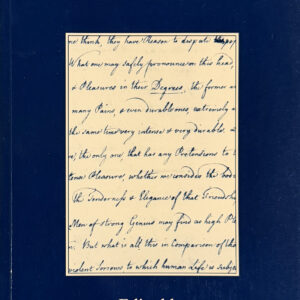 ne thank, they have Reason to dispute
What one may safely pronounce on this head,
& Pleasures in their Degrees, the former a
many Pains, & even durable ones, extremely
the same time very intense & very durable.
e, the only one, that has any Pretensions to
tense Pleasure, whether we consider the
the Tenderness & Elegance of that Friendsh
Men of strong Genius may find as high Ple
. But what is all this in Comparison of tha
violent Sorrows to which human Life is